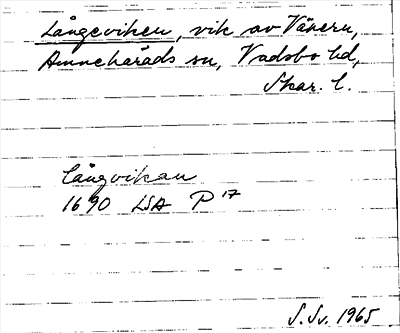 Långeviken, vik av Vänern,
Amnehärads sn, Vadsbo hd,
Skar. l.
Långvikan
1690 LSA P 17
S.Sv. 1965